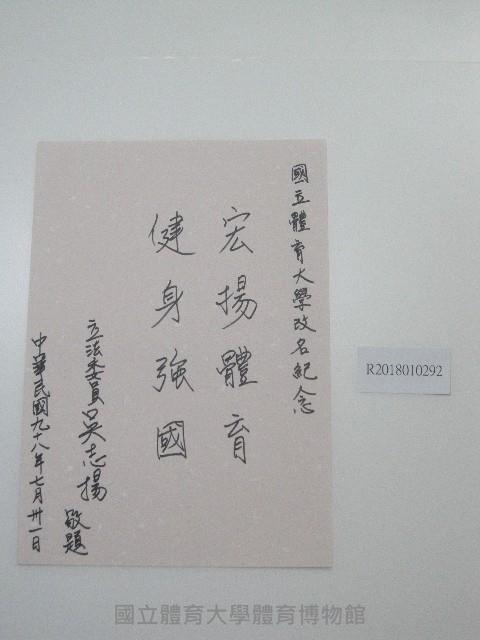 國立體育大學改名紀念
宏揚體育
健身強國
立法委員吳志揚
敬題
中華民國九十八年七月卅一日
R2018010292
國立體育大學體育博物館